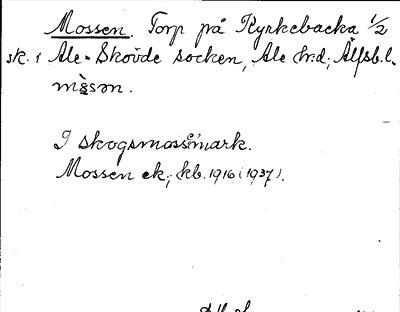 Mossen. Torp på Kyrkebacka 1/2
sk. i Ale-Skövde socken, Ale hrd; Älfsb. l.
mòsən.
I skogsmossmark.
Mossen ek; kb. 1916 (1937).